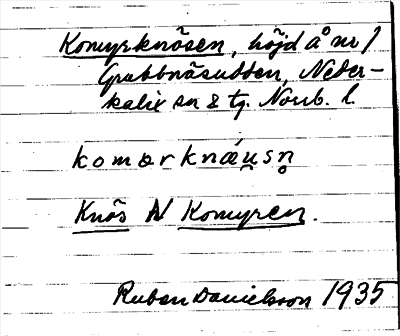 Komyrknösen, höjd å nr 1
Grubbnäsudden, Neder-
kalix sn & tg. Norrb. l.
komərknǽu̯sn̥
Knös N Komyren.
Ruben Danielsson 1935